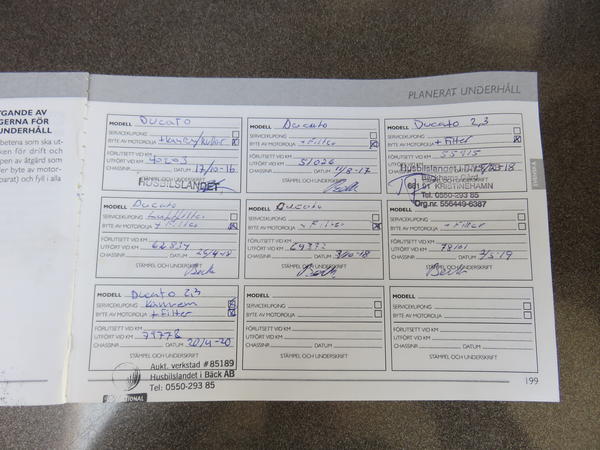 TGANDE AV
GERNA FÖR
UNDERHÅLL
betena som ska ut-
ken för drift och
pen av åtgärd som
er byte av motor-
parat) och fyll i alla
PLANERAT UNDERHÅLL
MODELL Ducato
SERVICEKUPONG
BYTE AV MOTOROLJA
FÖRLITSETT VID KM
UTFÖRT VID KM 40203
CHASSINR DATUM 17/10-16
STÄMPEL OCH UNDERSKRIFT
HUSBILSLANDET
MODELL Ducato
SERVICEKUPONG
BYTE AV MOTOROLJA + Filter
FÖRLITSETT VID KM
UTFÖRT VID KM 51026
CHASSINR DATUM
STÄMPEL OCH UNDERSKRIFT
MODELL Ducato 2,3
SERVICEKUPONG
BYTE AV MOTOROLJA + Filter
FÖRLITSETT VID KM
UTFÖRT VID KM 55915
681 91 KRISTINEHAMN
Tel. 0550-293 85
Org.nr. 556449-6387
SVENSKA
MODELL Ducato
SERVICEKUPONG
BYTE AV MOTOROLJA + Filter
FÖRLITSETT VID KM
UTFÖRT VID KM 62834
CHASSINR DATUM
STÄMPEL OCH UNDERSKRIFT
MODELL Ducato
SERVICEKUPONG
BYTE AV MOTOROLJA + Filter
FÖRLITSETT VID KM
UTFÖRT VID KM 69372
CHASSINR DATUM
STÄMPEL OCH UNDERSKRIFT
MODELL
SERVICEKUPONG
BYTE AV MOTOROLJA + Filter
FÖRLITSETT VID KM
UTFÖRT VID KM 78101
CHASSINR DATUM 3/5-19
STÄMPEL OCH UNDERSKRIFT
MODELL Ducato 2,3
SERVICEKUPONG
BYTE AV MOTOROLJA + Filter
FÖRLITSETT VID KM
UTFÖRT VID KM 79778
CHASSINR DATUM 20/4-20
STÄMPEL OCH UNDERSKRIFT
Aukt. verkstad #85189
Husbilslandet i Bäck AB
Tel: 0550-293 85
MODELL
SERVICEKUPONG
BYTE AV MOTOROLJA
FÖRLITSETT VID KM
UTFÖRT VID KM
CHASSINR DATUM
STÄMPEL OCH UNDERSKRIFT
MODELL
SERVICEKUPONG
BYTE AV MOTOROLJA
FÖRLITSETT VID KM
UTFÖRT VID KM
CHASSINR DATUM
STÄMPEL OCH UNDERSKRIFT
199